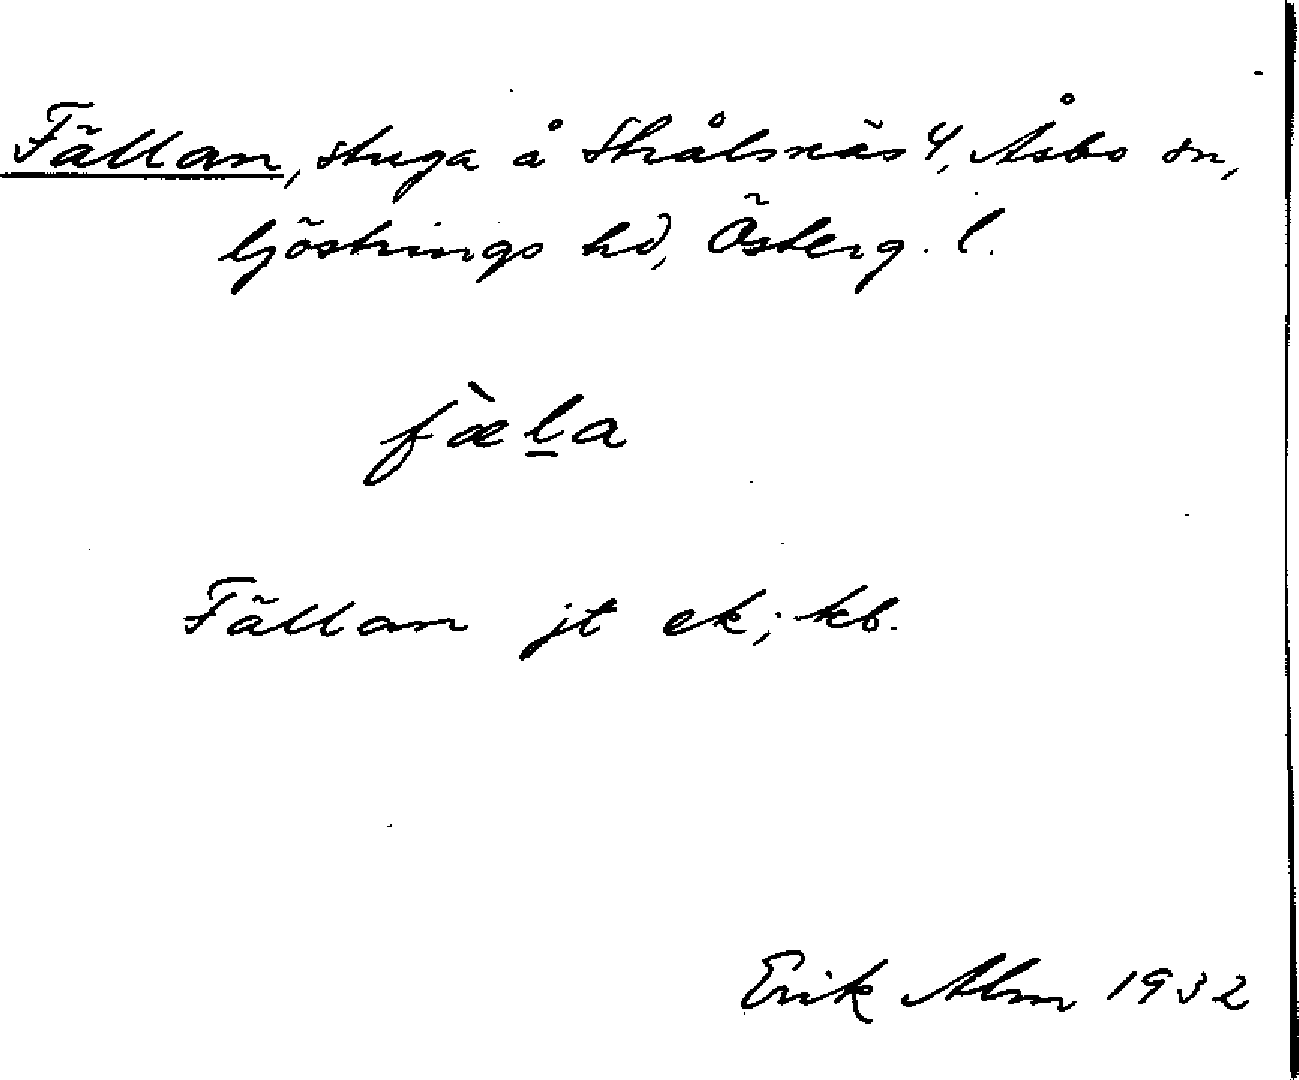 Fällan, stuga å Strålsnäs 4, Åsbo sn,
Göstrings hd, Österg. l.
fæ̀l̲a
Fällan jt ek; kb.
Erik Alm 1932